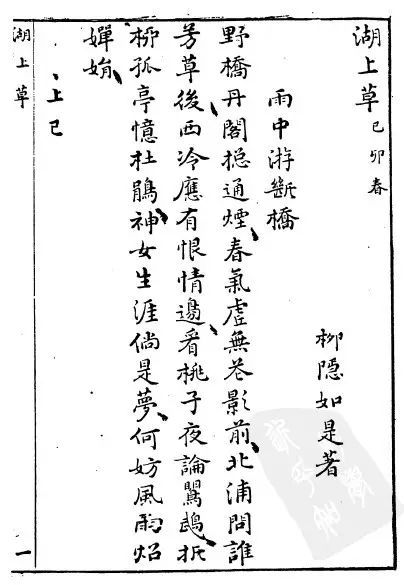 湖上草 己卯春
柳隱如是著
雨中游斷橋
野橋丹閣揔通煙、春氣虛無花影前、北浦問誰
芳草後西泠應有恨情邊、看桃子夜論鸎鵡、折
柳孤亭憶杜鵑、神女生涯倘是夢、何妨風雨炤
嬋娟、
上巳
湖上草
一